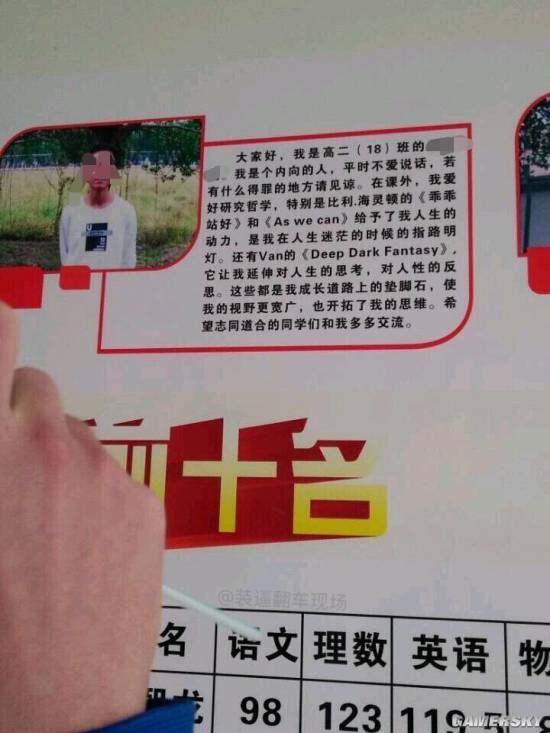 大家好，我是高二（18）班的
。我是个内向的人，平时不爱说话，若
有什么得罪的地方请见谅。在课外，我爱
好研究哲学，特别是比利.海灵顿的《乖乖
站好》和《As we can》给予了我人生的
动力，是我在人生迷茫的时候的指路明
灯。还有Van的《Deep Dark Fantasy》，
它让我延伸对人生的思考，对人性的反
思。这些都是我成长道路上的垫脚石，使
我的视野更宽广，也开拓了我的思维。希
望志同道合的同学们和我多多交流。
前十名
@装逼翻车现场
名 语文 理数 英语 物
龙 98 123 119.5
GAMERSKY